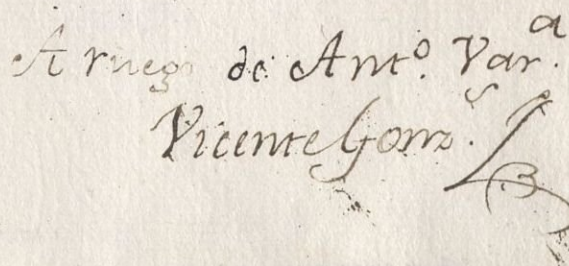 A ruego de Ant.º Var.ª
Vicente Gonz.s